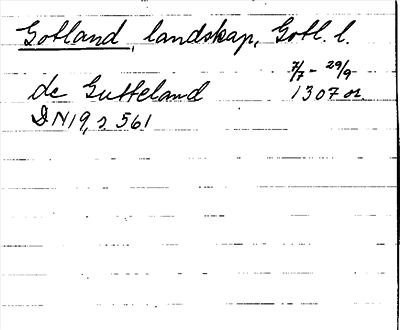 Gotland, landskap, Gotl. l.
7/7 - 29/9
de Gutteland 1307 or.
DN 19, s 561